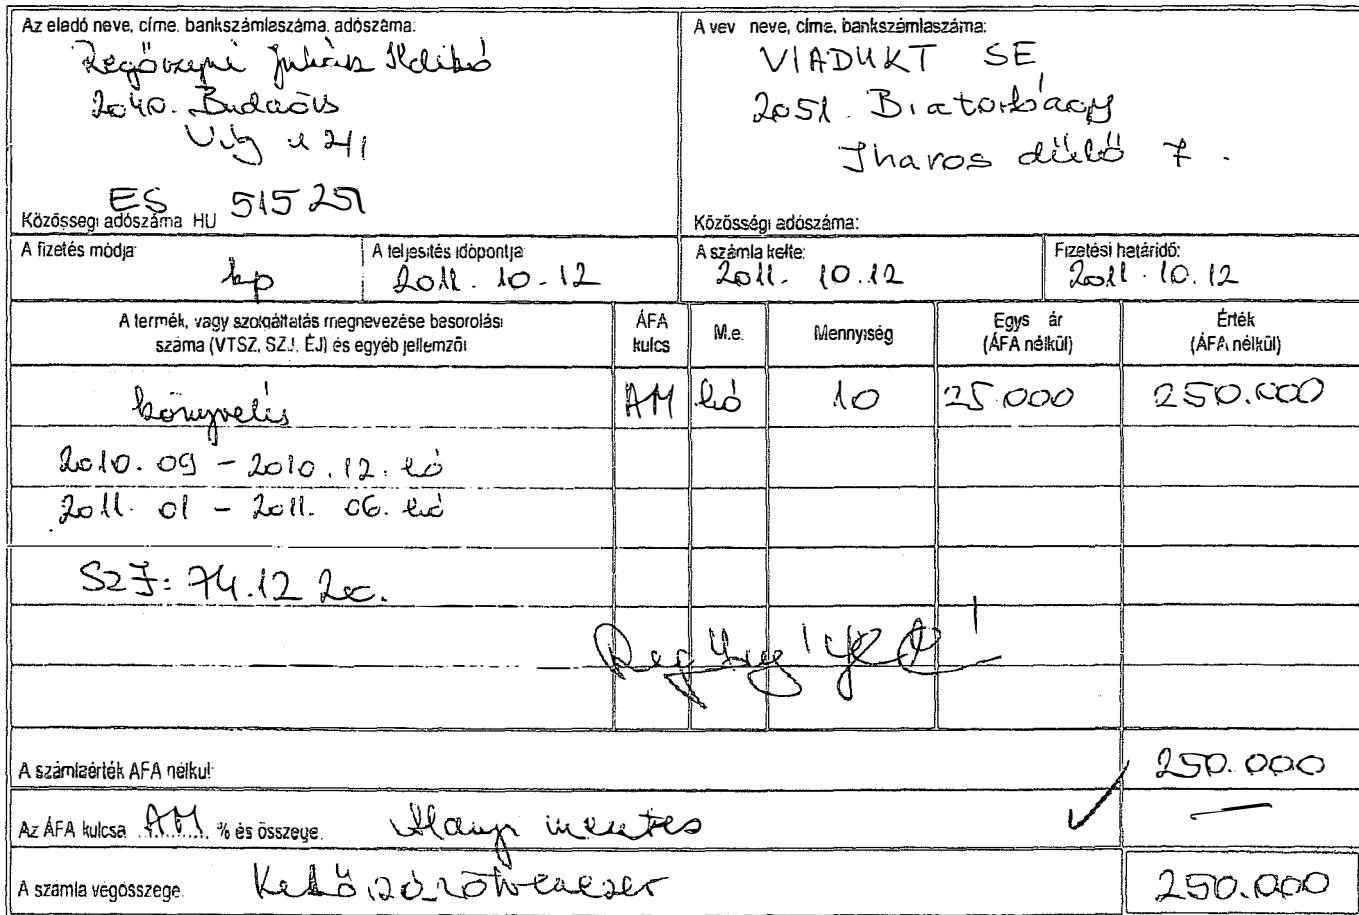 Az eladó neve, címe, bankszámlaszáma, adószáma:
Juhász Ildikó
2040. Budaörs
Víg u
ES 515251
Közösségi adószáma HU
A vev neve, címe, bankszámlaszáma:
VIADUKT SE
2051. Biatorbágy
Iharos dűlő 7.
Közösségi adószáma:
A fizetés módja:
kp
A teljesítés időpontja
2011. 10.12
A számla kelte:
2011. 10.12
Fizetési határidő:
2011. 10.12
A termék, vagy szolgáltatás megnevezése besorolási
száma (VTSZ, SZJ, ÉJ) és egyéb jellemzői
ÁFA
kulcs
M.e.
Mennyiség
Egys ár
(ÁFA nélkül)
Érték
(ÁFA nélkül)
könyvelés AM hó 10 25.000 250.000
2010. 09 - 2010. 12. hó
2011. 01 - 2011. 06. hó
SZJ: 74.12
A számlaérték ÁFA nélkül: 250.000
Az ÁFA kulcsa AM % és összege. Alanyi mentes ✓ —
A számla végösszege. Kettőszázötvenezer 250.000